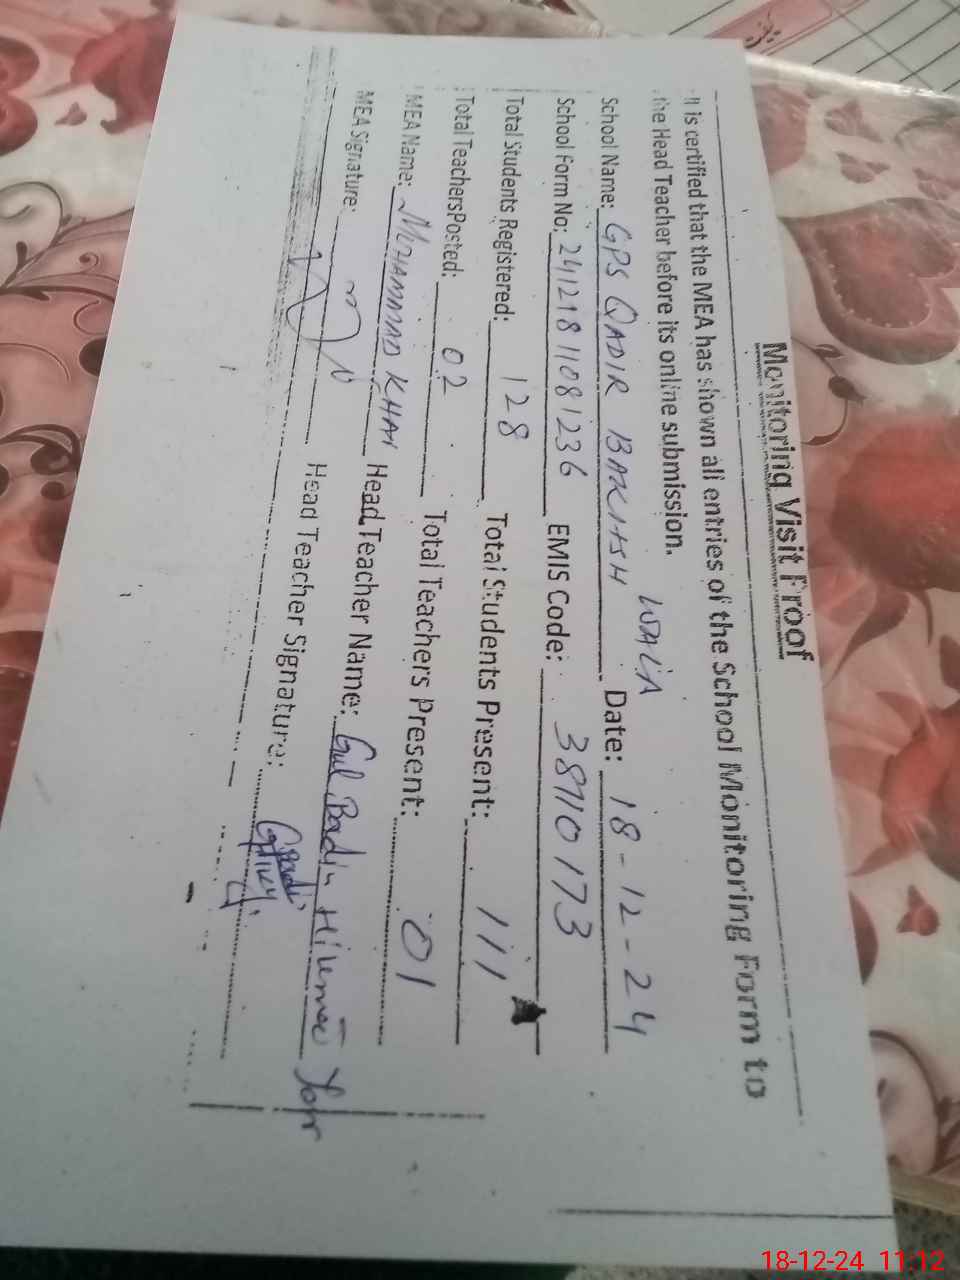 Monitoring Visit Proof
It is certified that the MEA has shown all entries of the School Monitoring Form to
the Head Teacher before its online submission.
School Name: GPS QADIR BAKHSH WALA Date: 18-12-24
School Form No: 24121811081236 EMIS Code: 38110173
Total Students Registered: 128 Total Students Present: 111
Total Teachers Posted: 02 Total Teachers Present: 01
MEA Name: MUHAMMAD KHAN Head Teacher Name: Gul Badin
MEA Signature: Head Teacher Signature:
18-12-24 11:12